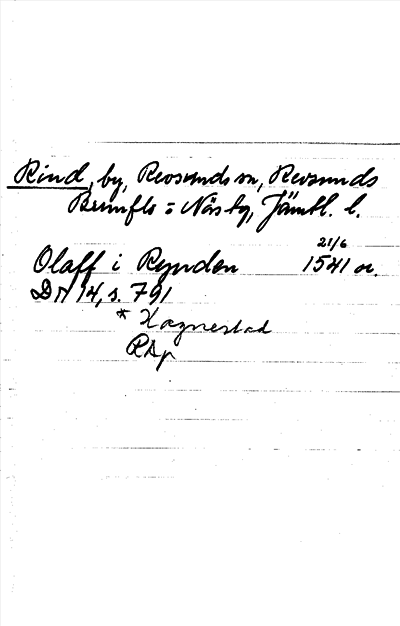 Rind, by, Revsunds sn, Revsunds
Brunflo o Näs tg, Jämtl. l.
21/6
Olaff i Rynden 1541 or.
DN 14, s. 791
* Hagnestad
RAp